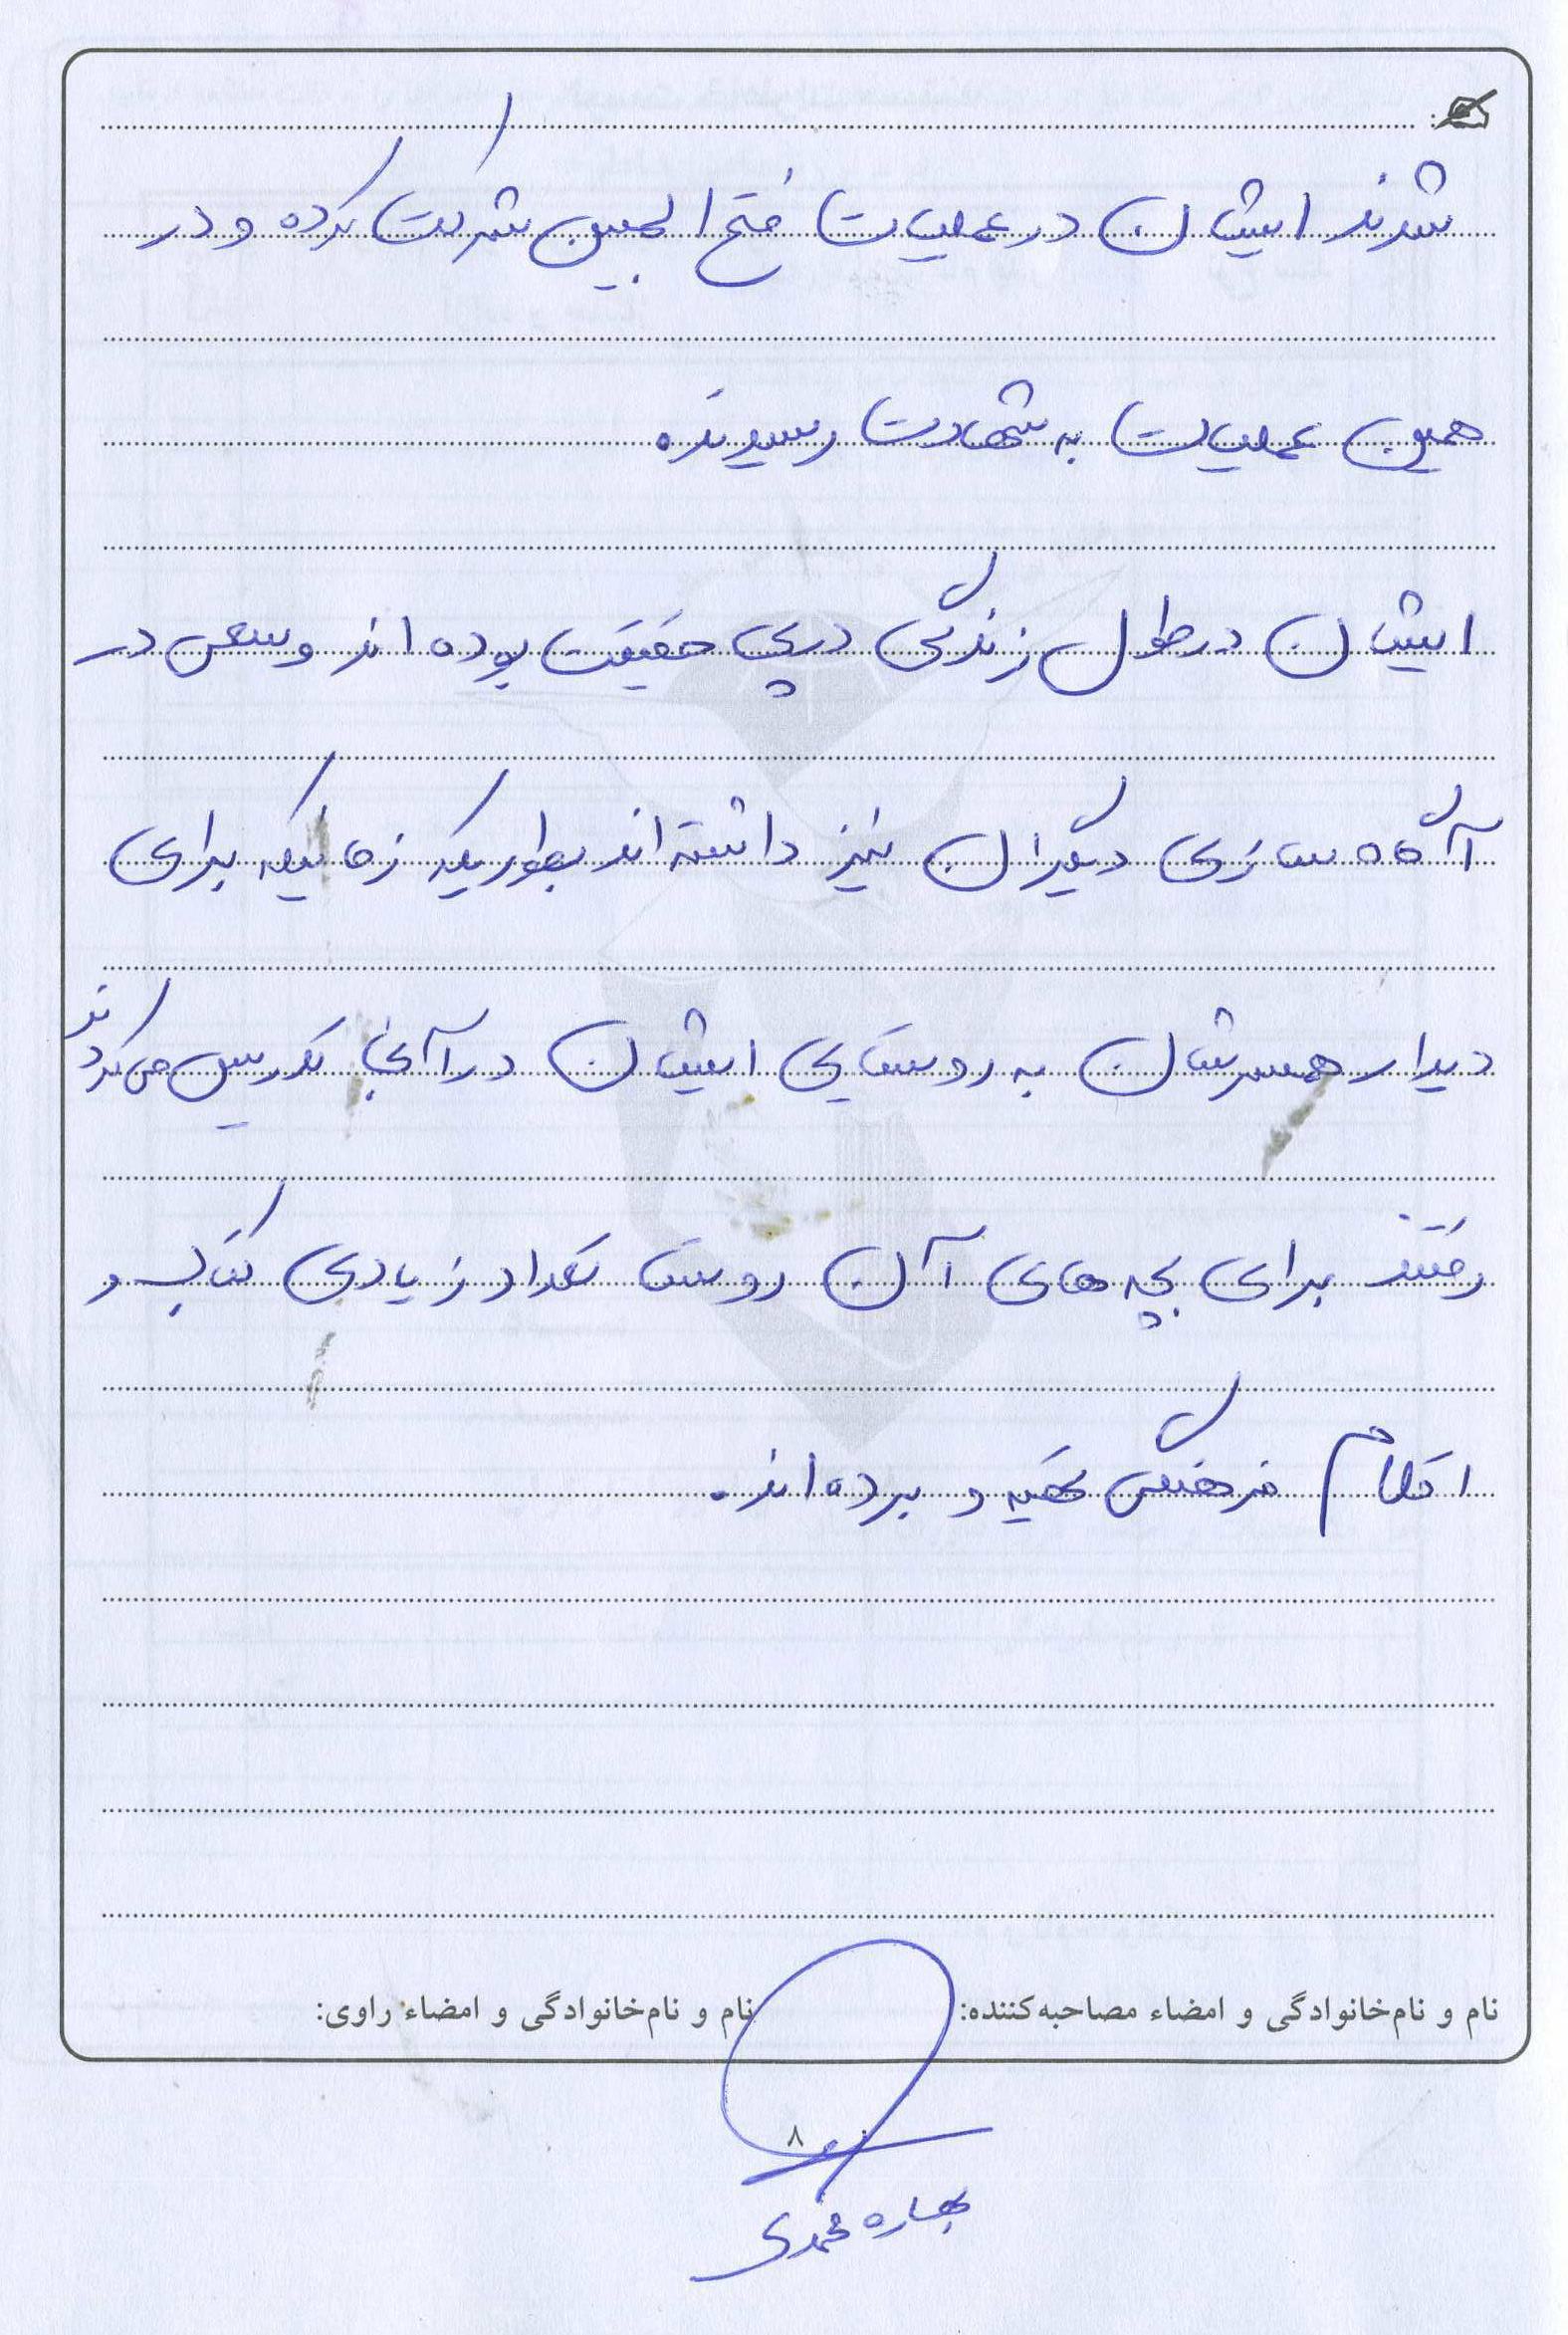 شدند ایشان در عملیات فتح المبین شرکت کرده و در
همین عملیات به شهادت رسیدند.
ایشان در طول زندگی در پی حقیقت بوده اند و سعی در
آگاه سازی دیگران نیز داشته اند بطوریکه زمانیکه برای
دیدار همسرشان به روستایی ایشان در آنجا تدریس می کردند
رفتند برای بچه های آن روستا تعداد زیادی کتاب و
اقلام فرهنگی تهیه و برده اند.
نام و نام‌خانوادگی و امضاء مصاحبه‌کننده:
نام و نام‌خانوادگی و امضاء راوی:
۸
بهاره محمدی